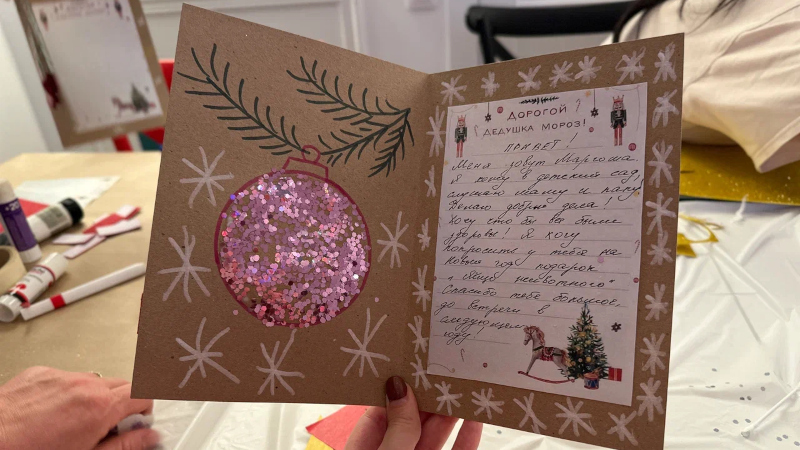 ДОРОГОЙ
ДЕДУШКА МОРОЗ!
ПРИВЕТ!
Меня зовут Маргоша.
Я хожу в детский сад,
слушаю маму и папу
Делаю добрые дела!
Хочу что бы вы были
здоровы! Я хочу
попросить у тебя на
Новый год подарок
"яйцо животного"
Спасибо тебе большое
до встречи в
следующем
году!